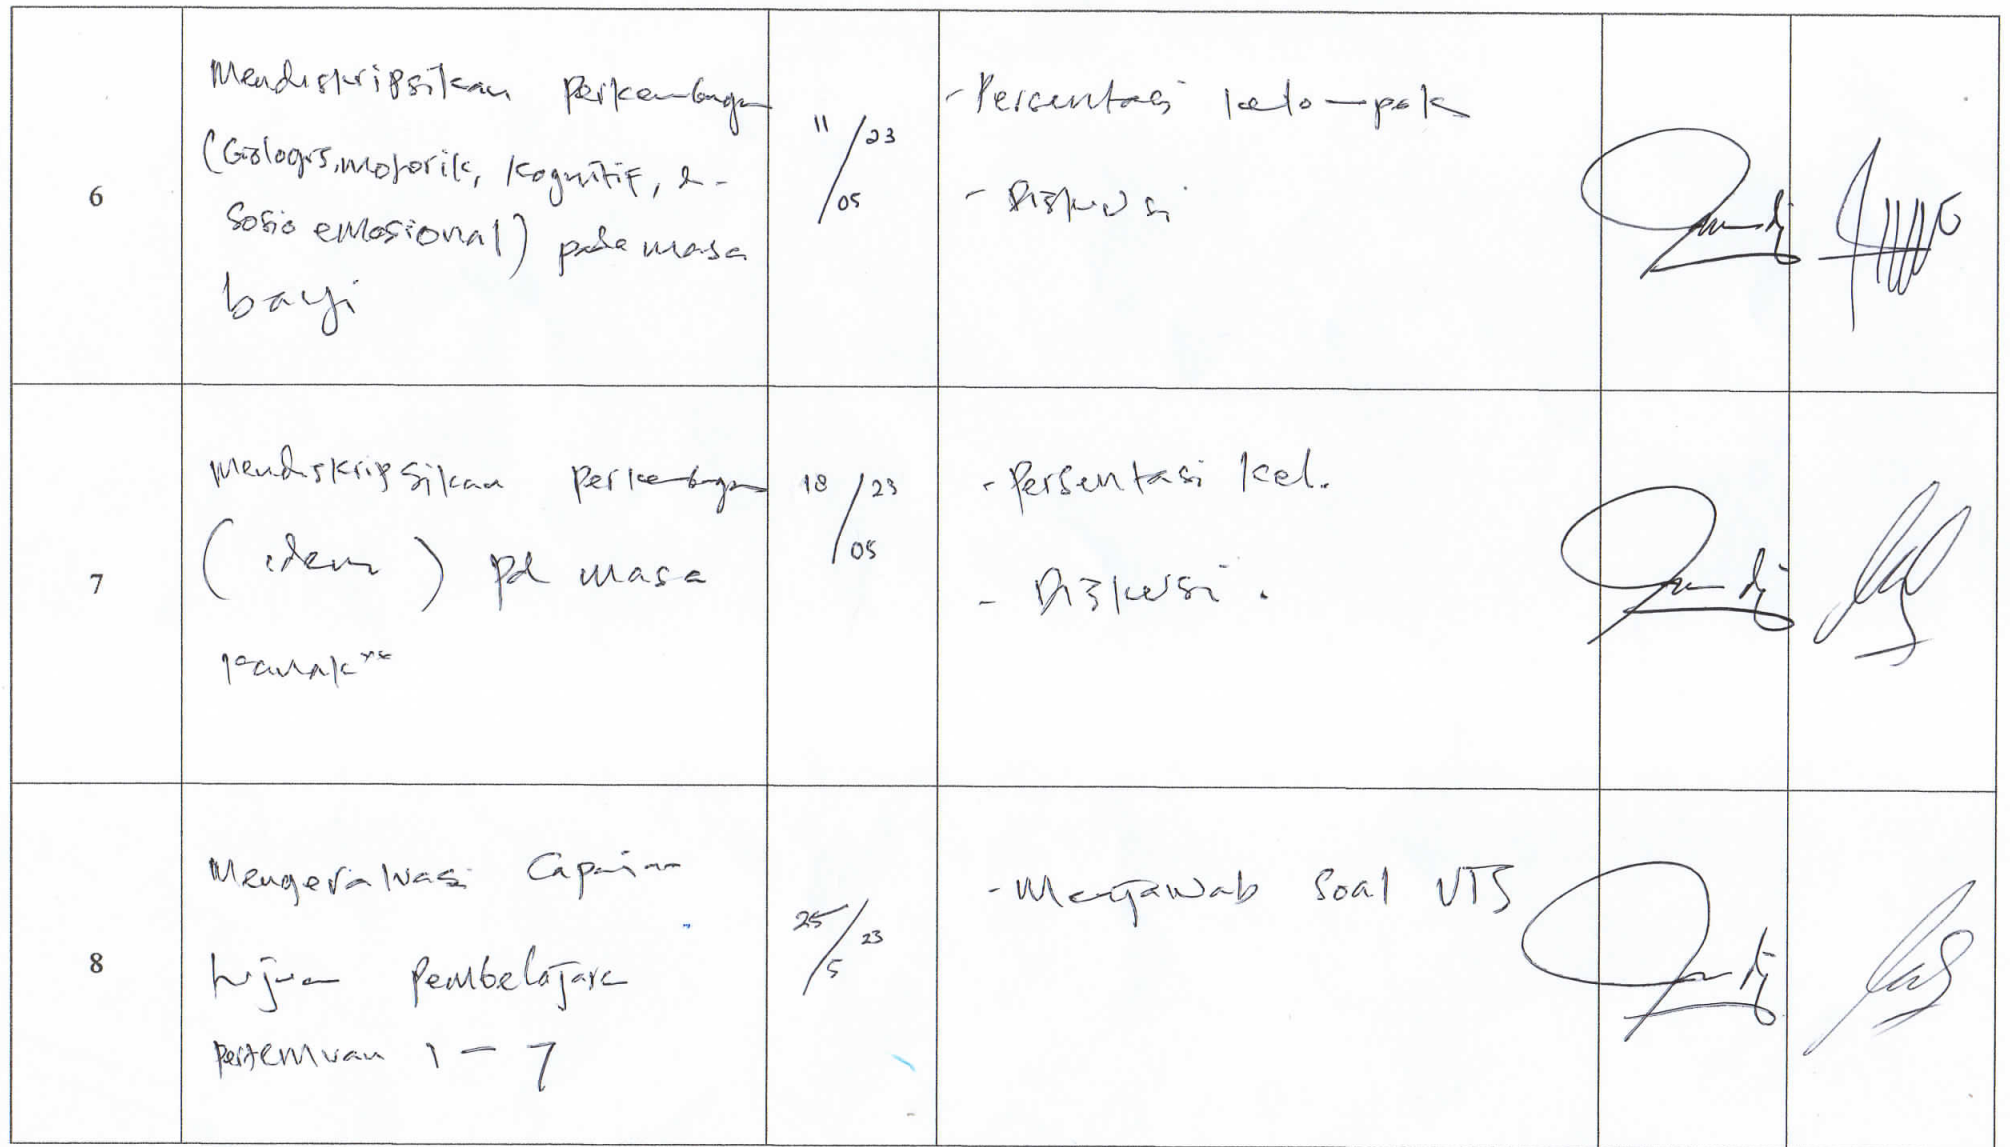 6
Mendiskripsikan Perkembangan
(Biologis, motorik, Kognitif, &
Sosio emosional) pada masa
bayi
11/05 23
- Persentasi kelompok
- Diskusi
7
Mendiskripsikan Perkembangan
(idem) pd masa
kanak"
18/05 23
- Persentasi kel.
- Diskusi.
8
Mengevaluasi Capaian
tujuan Pembelajaran
Pertemuan 1 - 7
25/5 23
- Menjawab Soal UTS